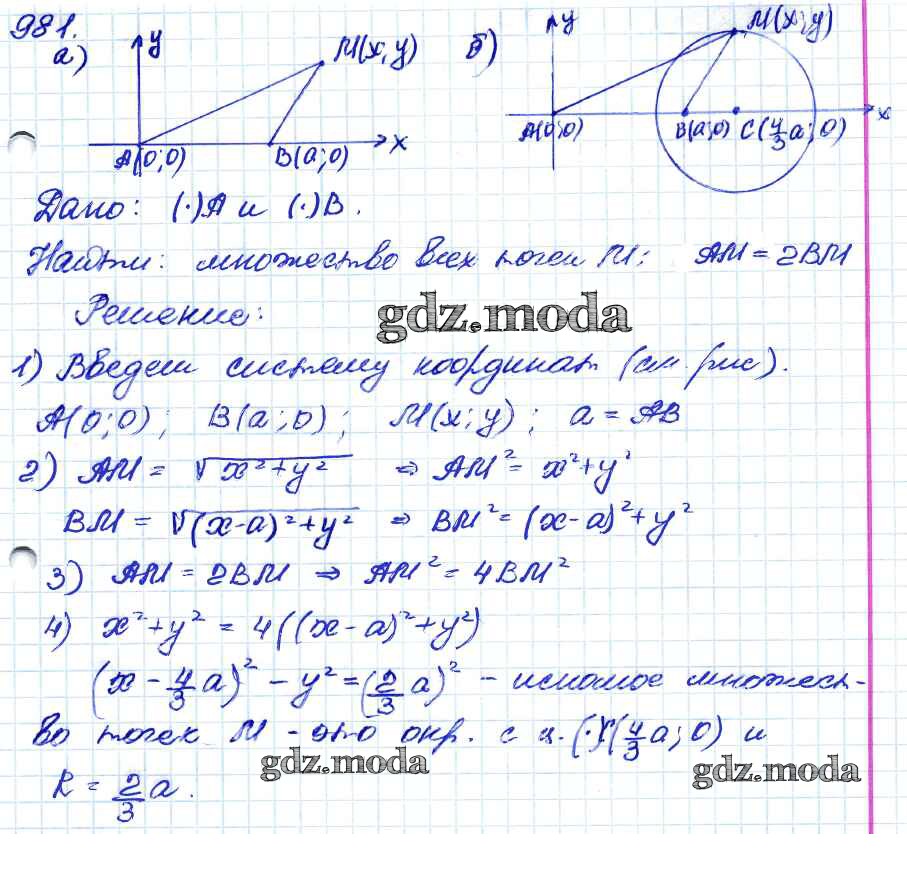 981.
а) y M(x; y) A(0; 0) B(a; 0) x
б) y M(x; y) A(0; 0) B(a; 0) C(4/3 a; 0) x
Дано: (·)A и (·)B.
Найти: множество всех точек M: AM = 2BM
Решение:
gdz.moda
1) Введем систему координат (см. рис).
A(0; 0); B(a; 0); M(x; y); a = AB
2) AM = √x²+y² ⇒ AM² = x²+y²
BM = √(x-a)²+y² ⇒ BM² = (x-a)²+y²
3) AM = 2BM ⇒ AM² = 4BM²
4) x²+y² = 4((x-a)²+y²)
(x - 4/3 a)² - y² = (2/3 a)² - искомое множест-
во точек M - это окр. с ц. (·)C(4/3 a; 0) и
R = 2/3 a.
gdz.moda
gdz.moda